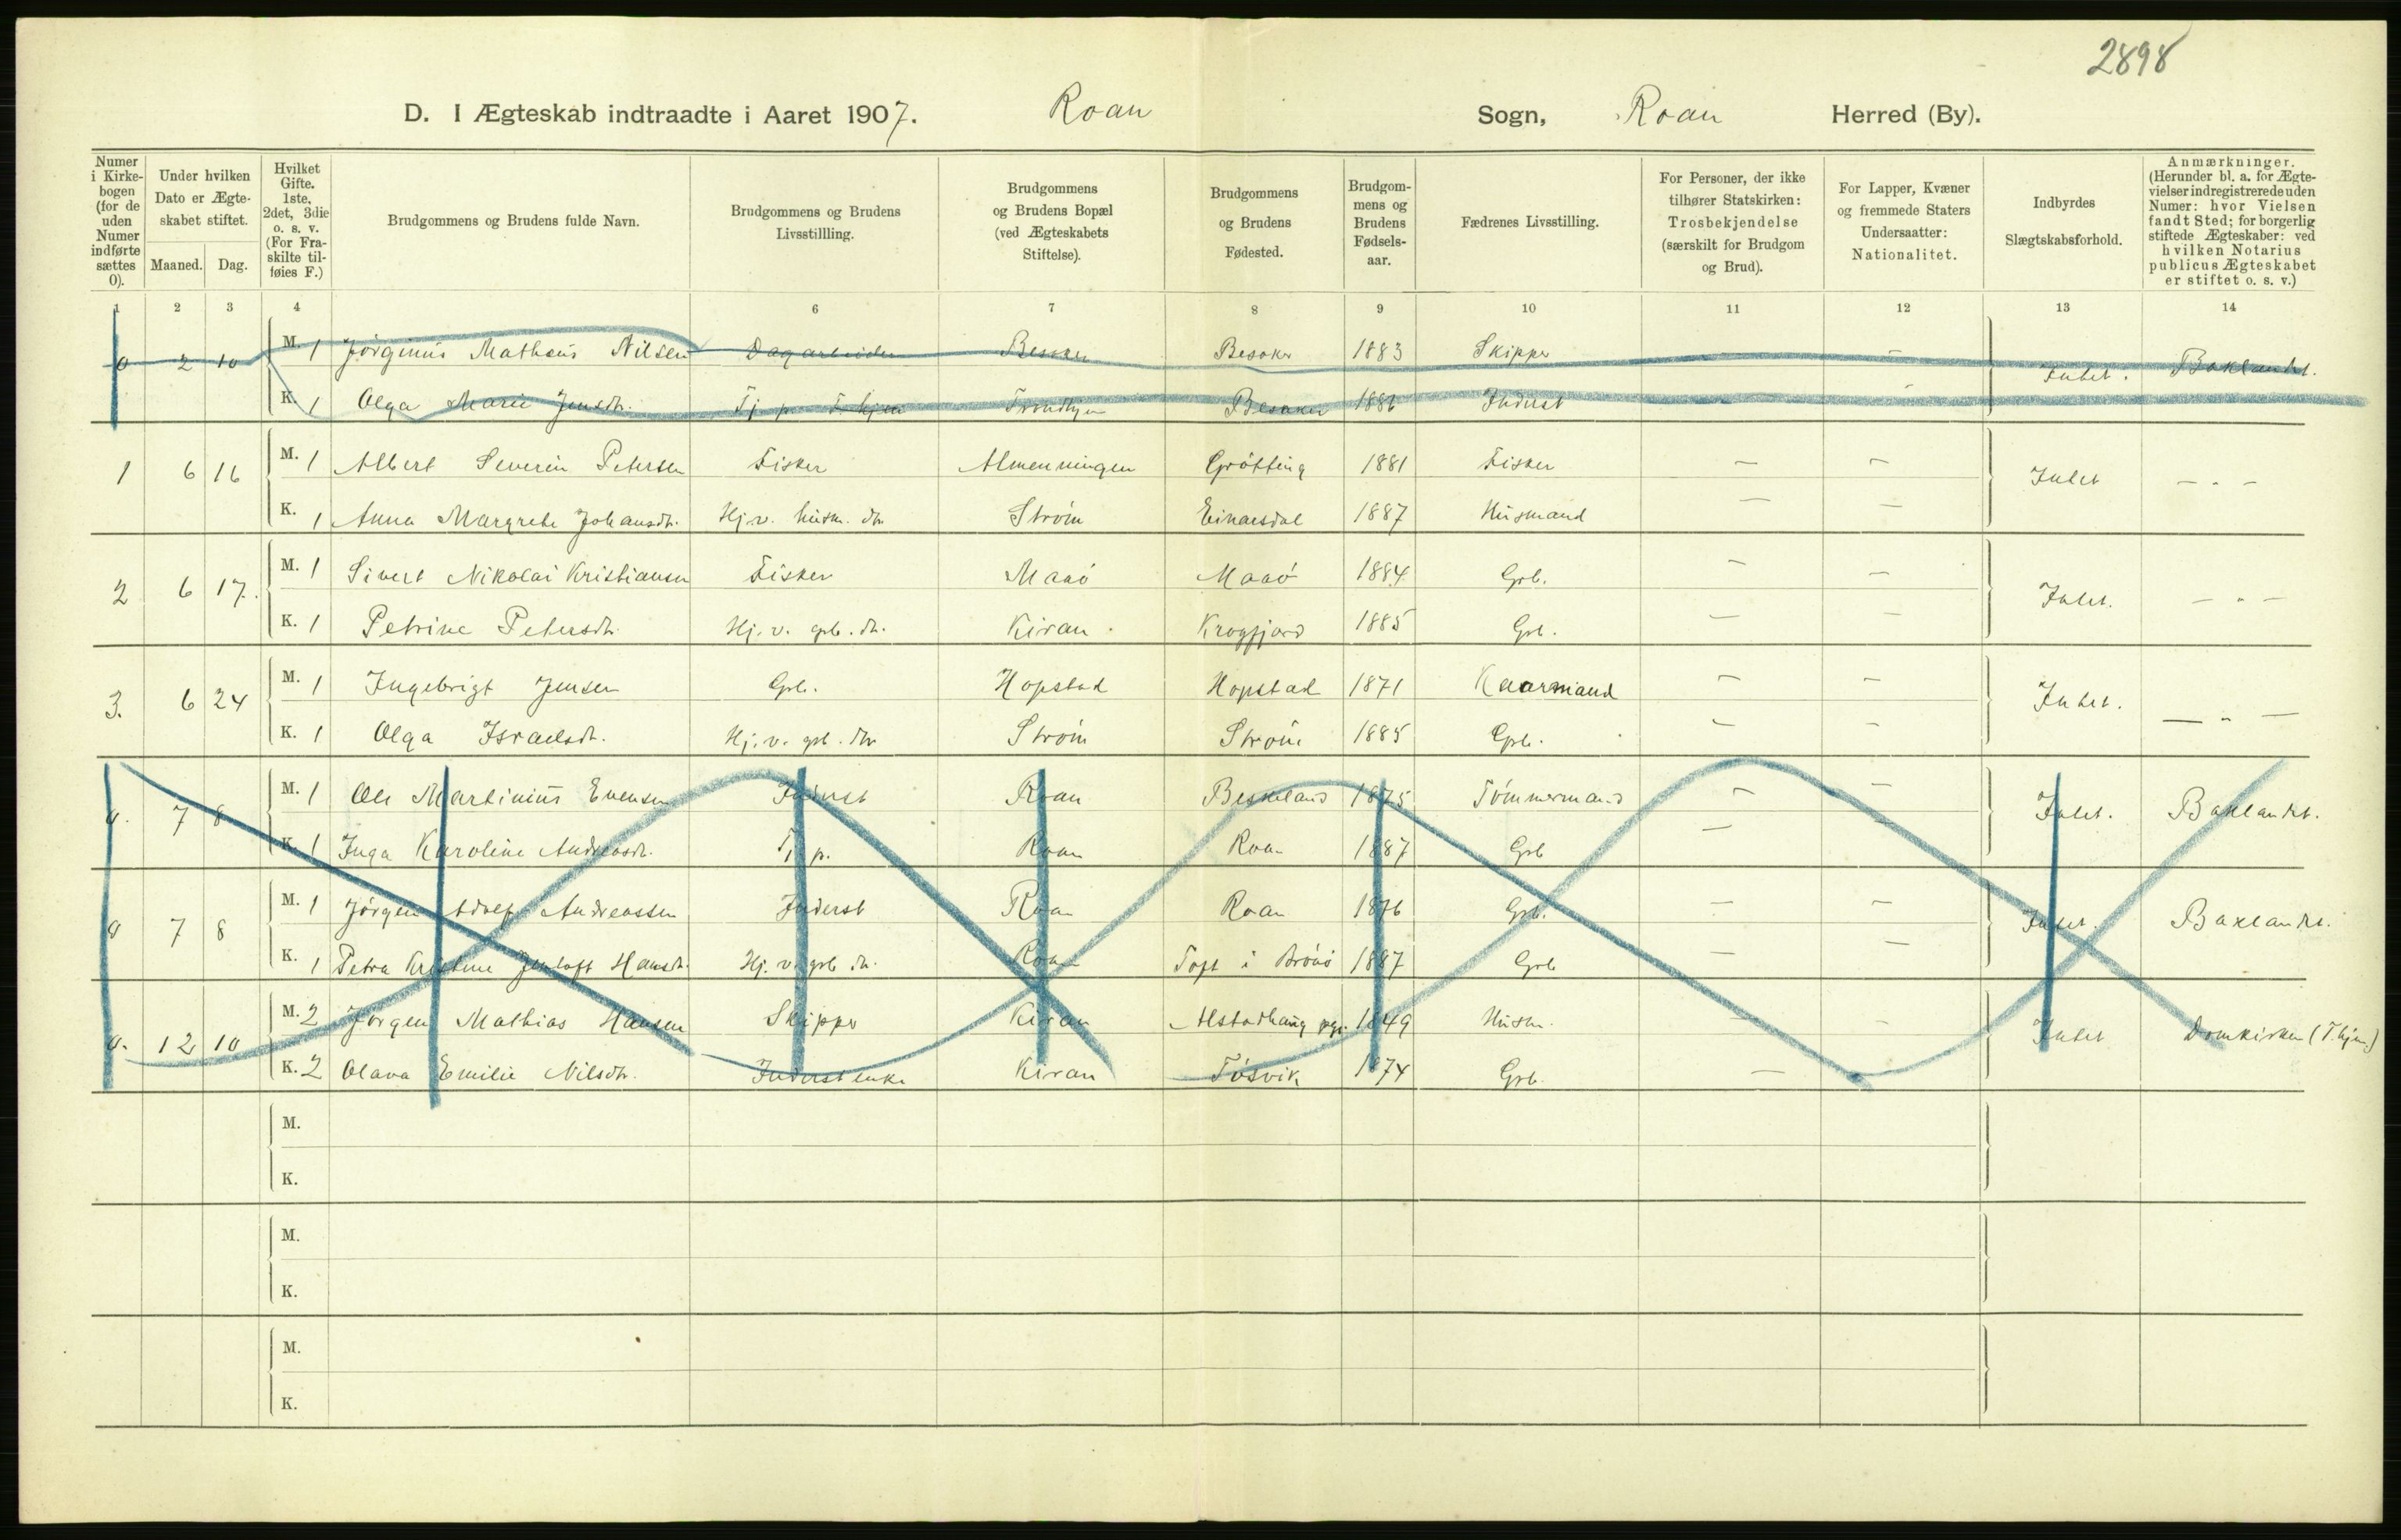 2898
D. I Ægteskab indtraadte i Aaret 1907. Roan Sogn, Roan Herred (By).
Numer i Kirke-bogen (for de uden Numer indførte sættes 0).
Under hvilken Dato er Ægte-skabet stiftet.
Maaned. Dag.
Hvilket Gifte. 1ste, 2det, 3die o. s. v. (For Fra-skilte til-føies F.)
Brudgommens og Brudens fulde Navn.
Brudgommens og Brudens Livsstillling.
Brudgommens og Brudens Bopæl (ved Ægteskabets Stiftelse).
Brudgommens og Brudens Fødested.
Brudgom-mens og Brudens Fødsels-aar.
Fædrenes Livsstilling.
For Personer, der ikke tilhører Statskirken: Trosbekjendelse (særskilt for Brudgom og Brud).
For Lapper, Kvæner og fremmede Staters Undersaatter: Nationalitet.
Indbyrdes Slægtskabsforhold.
Anmærkninger. (Herunder bl. a. for Ægte-vielser indregistrerede uden Numer: hvor Vielsen fandt Sted; for borgerlig stiftede Ægteskaber: ved hvilken Notarius publicus Ægteskabet er stiftet o. s. v.)
1 2 3 4 6 7 8 9 10 11 12 13 14
0 2 10 M. 1 Jörginus Matheus Nilsen Dagarbeider Besaker Besaker 1883 Skipper — Intet. Baklandet.
K. 1 Olga Marie Jensdtr. Tj. p. T.hjem Trondhjem Besaker 1886 Inderst
1 6 16 M. 1 Albert Severin Petersen Fisker Almenningen Grötting 1881 Fisker — — Intet — " —
K. 1 Anna Margrete Johansdtr. Hj. v. husm. dtr Ström Einarsdal 1887 Husmand — —
2 6 17. M. 1 Sivert Nikolai Kristiansen Fisker Maaö Maaö 1884 Grb. — — Intet. — " —
K. 1 Petrine Petersdtr. Hj. v. grb. dtr. Kiran. Krogfjord 1885 Grb. — —
3. 6 24 M. 1 Ingebrigt Jensen Grb. Hopstad Hopstad 1871 Kaarmand — — Intet. — " —
K. 1 Olga Israelsdtr. Hj. v. grb. dtr Ström Ström 1885 Grb. — —
0. 7 8 M. 1 Ole Martinius Evensen Inderst Roan Beskeland 1875 Tömmermand — — Intet. Baklandet.
K. 1 Inga Karoline Andreasdtr. Tj. p. Roan Roan 1887 Grb — —
0 7 8 M. 1 Jörgen Adolf Andreassen Inderst Roan Roan 1876 Grb. — — Intet. Baklandet.
K. 1 Petra Kristine Hansdtr. Hj. v. grb. dtr. Roan Toft i Brönö 1887 Grb — —
0. 12 10 M. 2 Jörgen Mathias Hansen Skipper Kiran Alstadhaug pgj. 1849 Husm. — Intet Domkirken (T.hjem.)
K. 2 Olava Emilie Nilsdtr. Inderstenke Kiran Tösvik 1874 Grb. —
M.
K.
M.
K.
M.
K.